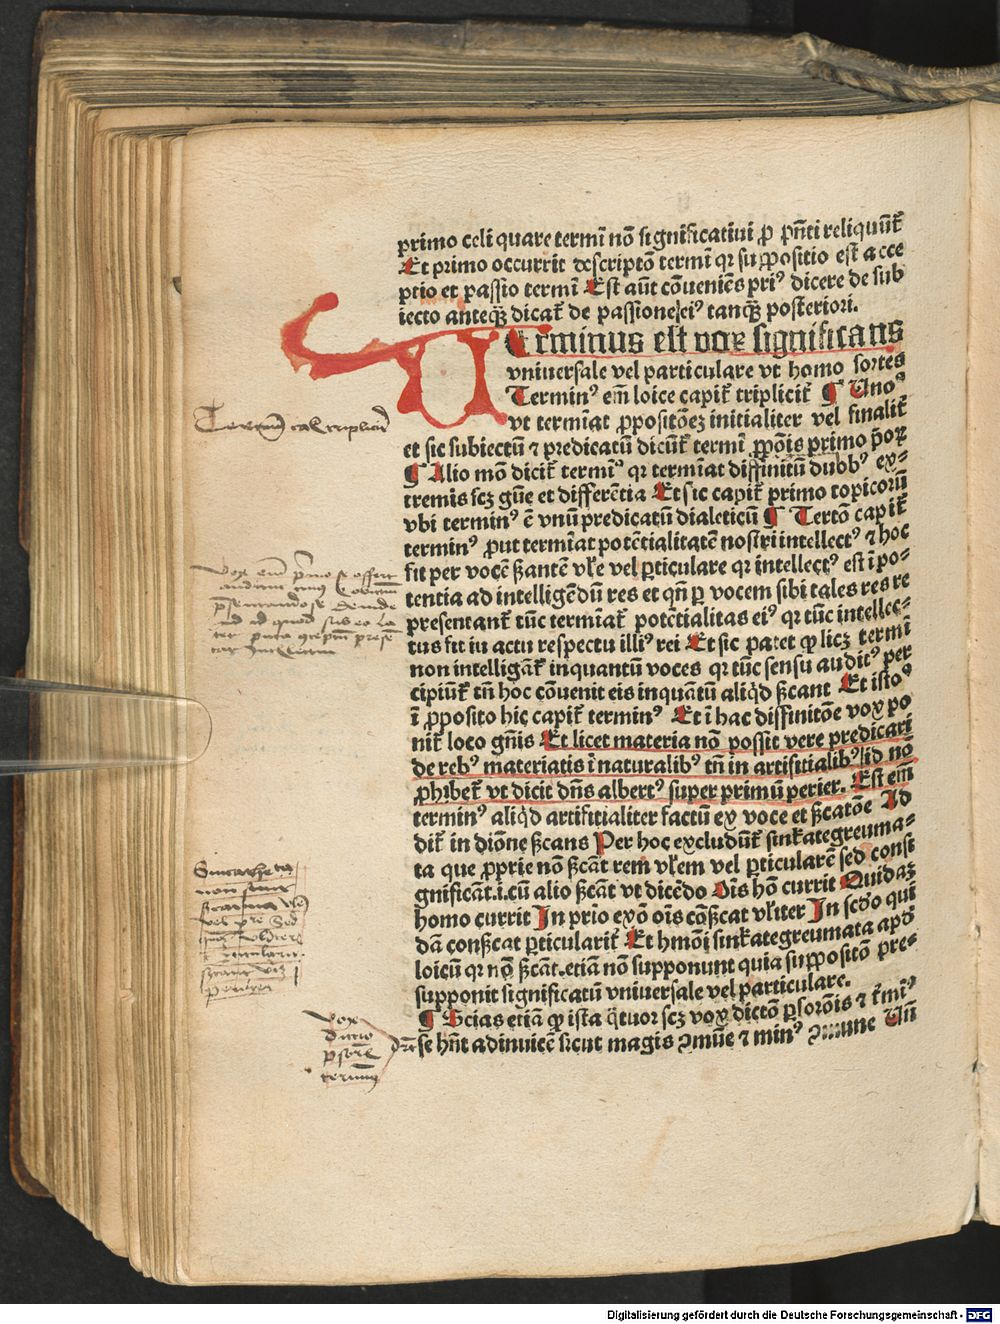 primo celi quare termī nō significatiui ꝓ pn̄ti reliquūt᷑
Et primo occurrit descriptō termī qꝛ suꝓpositio est acce
ptio et passio termī Est aūt cōueniēs pri⁹ dicere de sub
iecto anteqȝ̄ dicat᷑ de passione|ei⁹ tanqȝ̄ posteriori.
Terminus est vox significans
vniuersale vel particulare vt homo sortes
Termin⁹ em̄ loice capit᷑ triplicit᷑ ¶ Uno⁹
vt termīat ꝓpositōeȝ initialiter vel finalit᷑
et sic subiectū ⁊ predicatū dicūt᷑ termī ꝓpōis primo p̄oꝝ
¶ Alio mō dicit᷑ termī⁹ qꝛ termīat diffinitū dubb⁹ ex⸗
tremis scȝ gn̄e et differētia Et sic capit᷑ primo topicorū
vbi termin⁹ ē vnū predicatū dialeticū ¶ Tertō capit᷑
termin⁹ ꝓut termīat potētialitatē nostri intellect⁹ ⁊ hoc
fit per vocē ßantē vl̄e vel ꝑticulare qꝛ intellect⁹ est ī po⸗
tentia ad intelligēdū res et qn̄ ꝑ vocem sibi tales res re
presentant᷑ tūc termīat᷑ potētialitas ei⁹ qꝛ tūc intellec⸗
tus fit in actu respectu illi⁹ rei Et sic patet ꝙ licȝ termī
non intelligāt᷑ inquantū voces qꝛ tūc sensu audit⁹ per
cipiūt᷑ tn̄ hoc cōuenit eis inquātū aliq̇d ßcant Et isto⁹
ī ꝓposito hic capit᷑ termin⁹ Et ī hac diffinitōe vox po
nit᷑ loco gn̄is Et licet materia nō possit vere predicari
de reb⁹ materiatis ī naturalib⁹ tn̄ in artifitialib⁹/id nō
ꝓhibet᷑ vt dicit dn̄s albert⁹ super primū perier. Est em̄
termin⁹ aliq̇d artifitialiter factū ex voce et ßcatōe Ad
dit᷑ in diōne ßcans Per hoc excludūt᷑ sinkategreuma⸗
ta que ꝓprie nō ßcāt rem vl̄em vel ꝑticularē sed const
gnificāt.i.cū alio ßcāt vt dicēdo Oīs hō currit Quidaȝ
homo currit In prio exō oīs cōßcat vl̄iter In scd̄o qui
dā conßcat ꝑticularit᷑ Et hmōi sinkategreumata apd̄
loicū qꝛ nō ßcāt.etiā nō supponunt quia suppositō pre⸗
supponit significatū vniuersale vel particulare.
¶ Scias etiā ꝙ ista q̄tuor scȝ vox dictō ꝑs orōis ⁊ t᷑mī⁹
se hn̄t adinuicē sicut magis ꝯmūe ⁊ min⁹ ꝯmune Un̄
vox
dictio
terminus
Digitalisierung gefördert durch die Deutsche Forschungsgemeinschaft - DFG